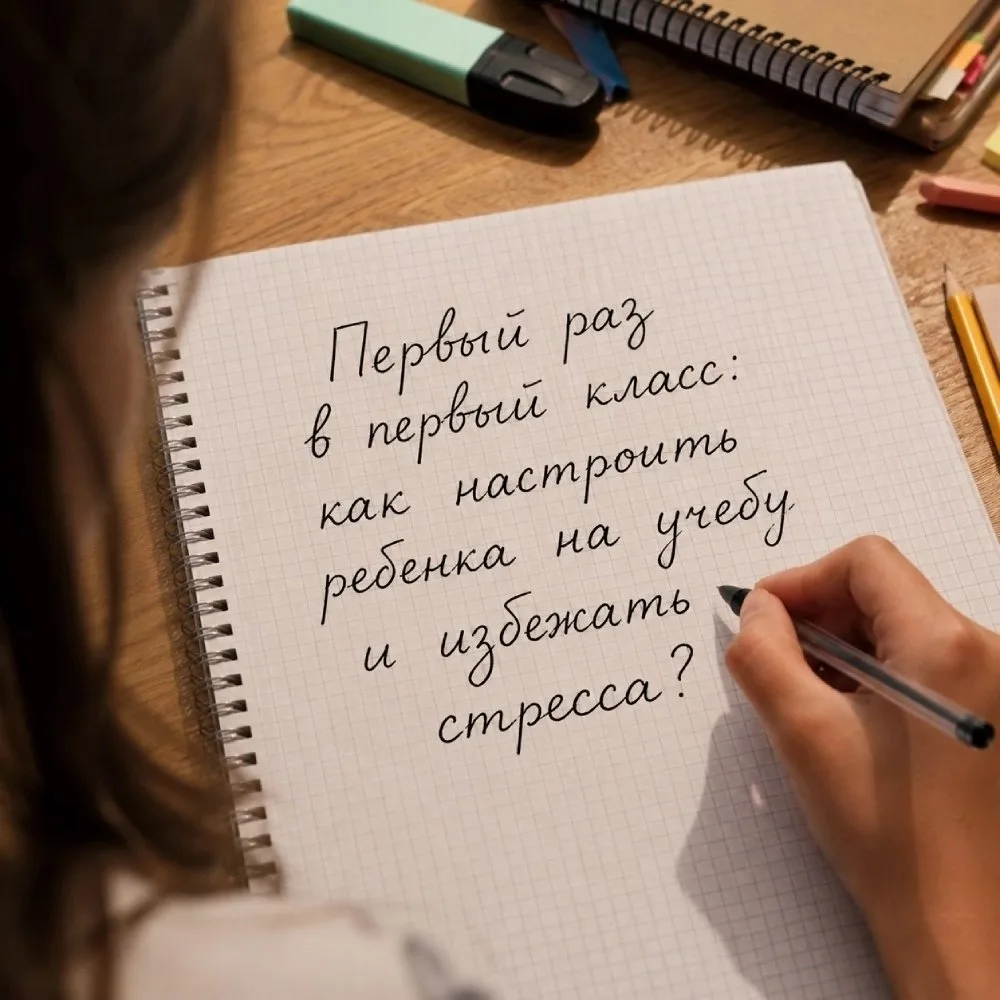 Первый раз
в первый класс:
как настроить
ребенка на учебу
и избежать
стресса?